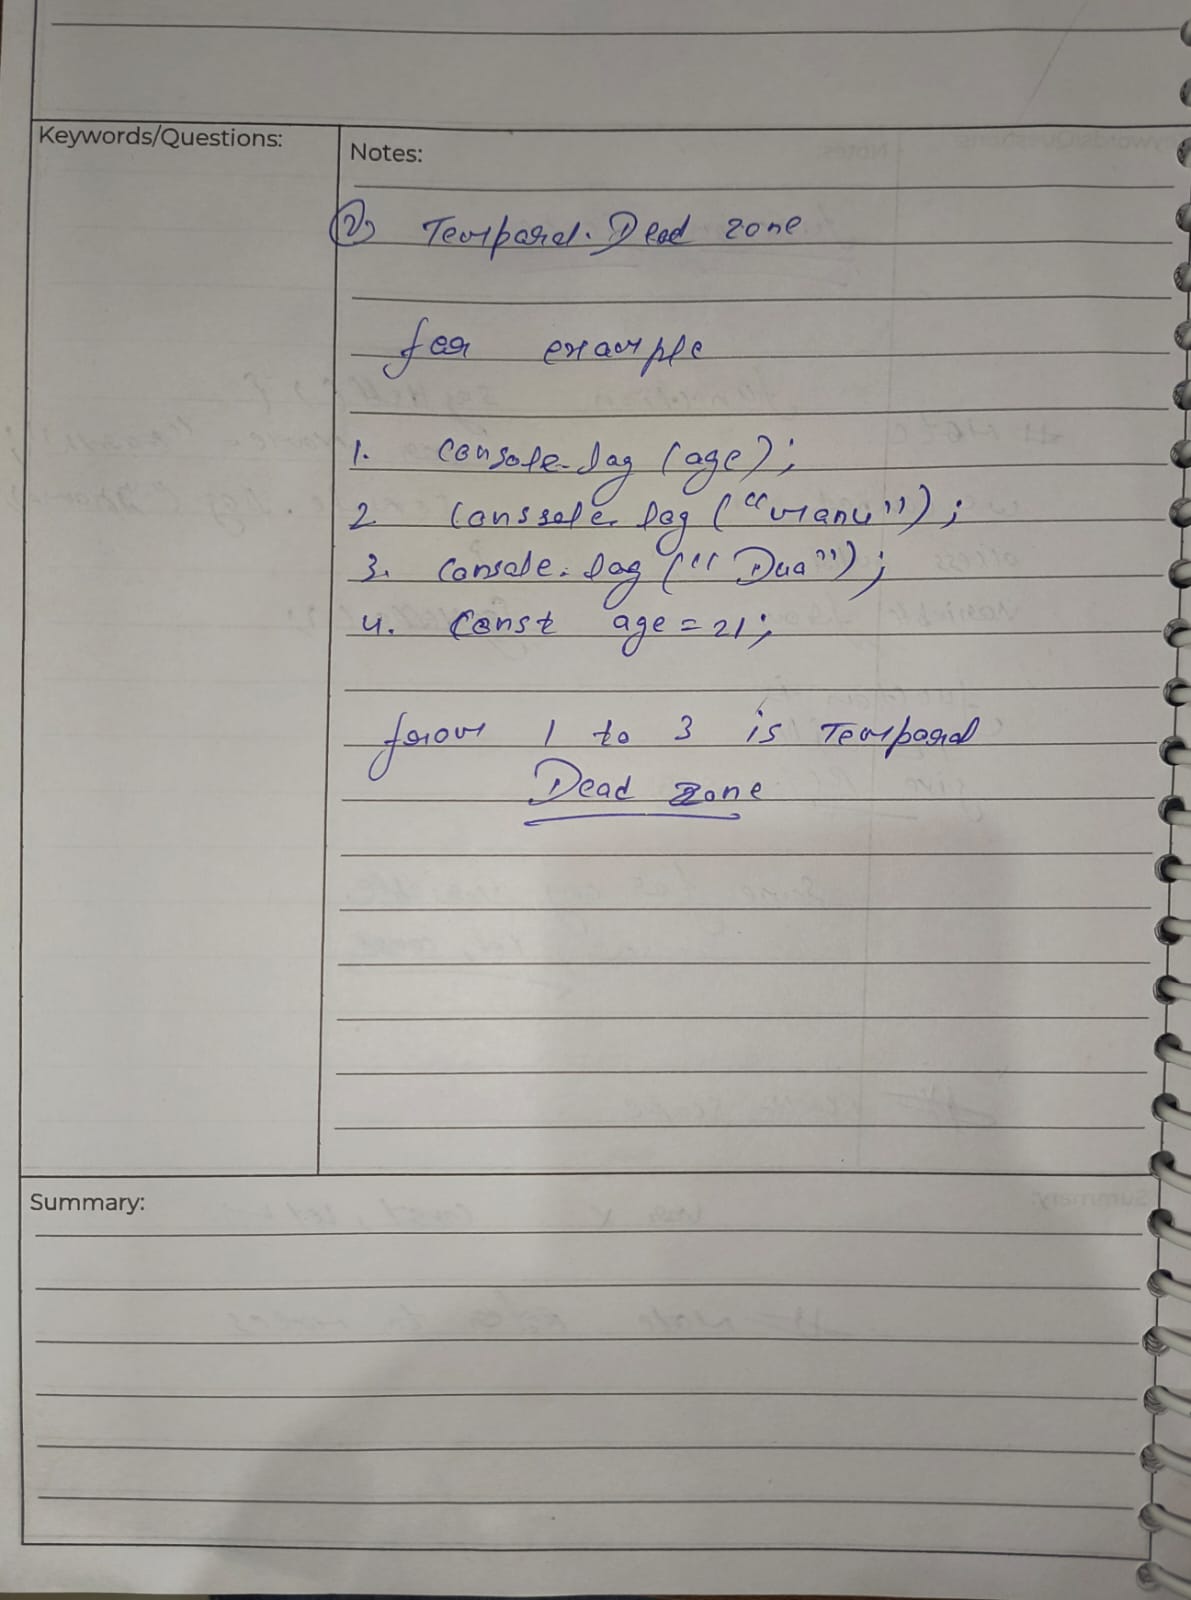 Keywords/Questions:
Notes:
② Temporal. Dead zone
for example
1. console.log (age);
2. Conssole.log ("manu");
3. Console.log ("Dua");
4. Const age = 21;
from 1 to 3 is Temporal
Dead zone
Summary: